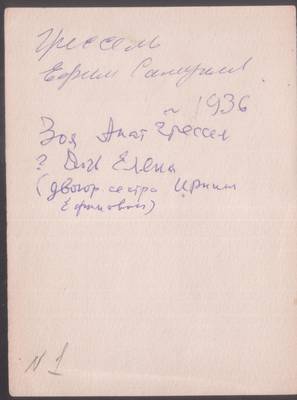 Грессель
Ефрим Самуил
~ 1936
Зоя Анат Грессел
? Доч Елена
(двоюр сестра Ирины
Ефимовой)
N 1